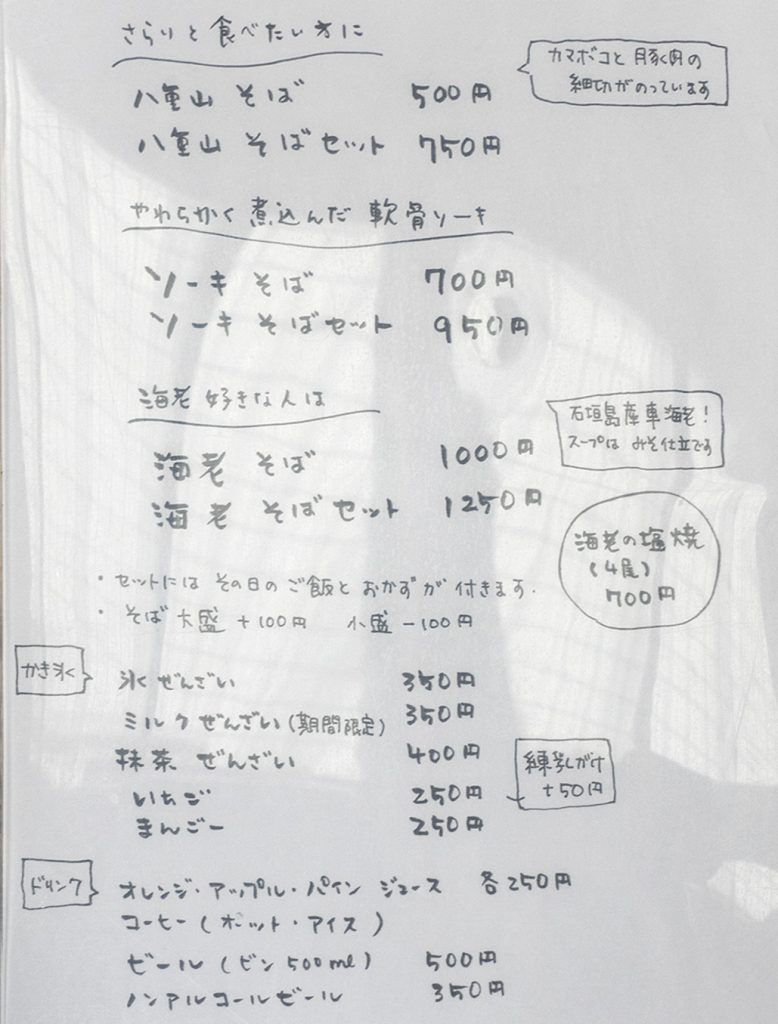 さらりと食べたい方に
カマボコと豚肉の
細切がのっています
八重山そば 500円
八重山そばセット 750円
やわらかく煮込んだ軟骨ソーキ
ソーキそば 700円
ソーキそばセット 950円
海老好きな人は
石垣島産車海老!
スープはみそ仕立です
海老そば 1000円
海老そばセット 1250円
海老の塩焼
(4尾)
700円
・セットにはその日のご飯とおかずが付きます.
・そば大盛+100円 小盛-100円
かき氷
氷ぜんざい 350円
ミルクぜんざい(期間限定) 350円
抹茶ぜんざい 400円
いちご 250円
まんごー 250円
練乳がけ
+50円
ドリンク
オレンジ・アップル・パインジュース 各250円
コーヒー(ホット・アイス)
ビール(ビン500ml) 500円
ノンアルコールビール 350円